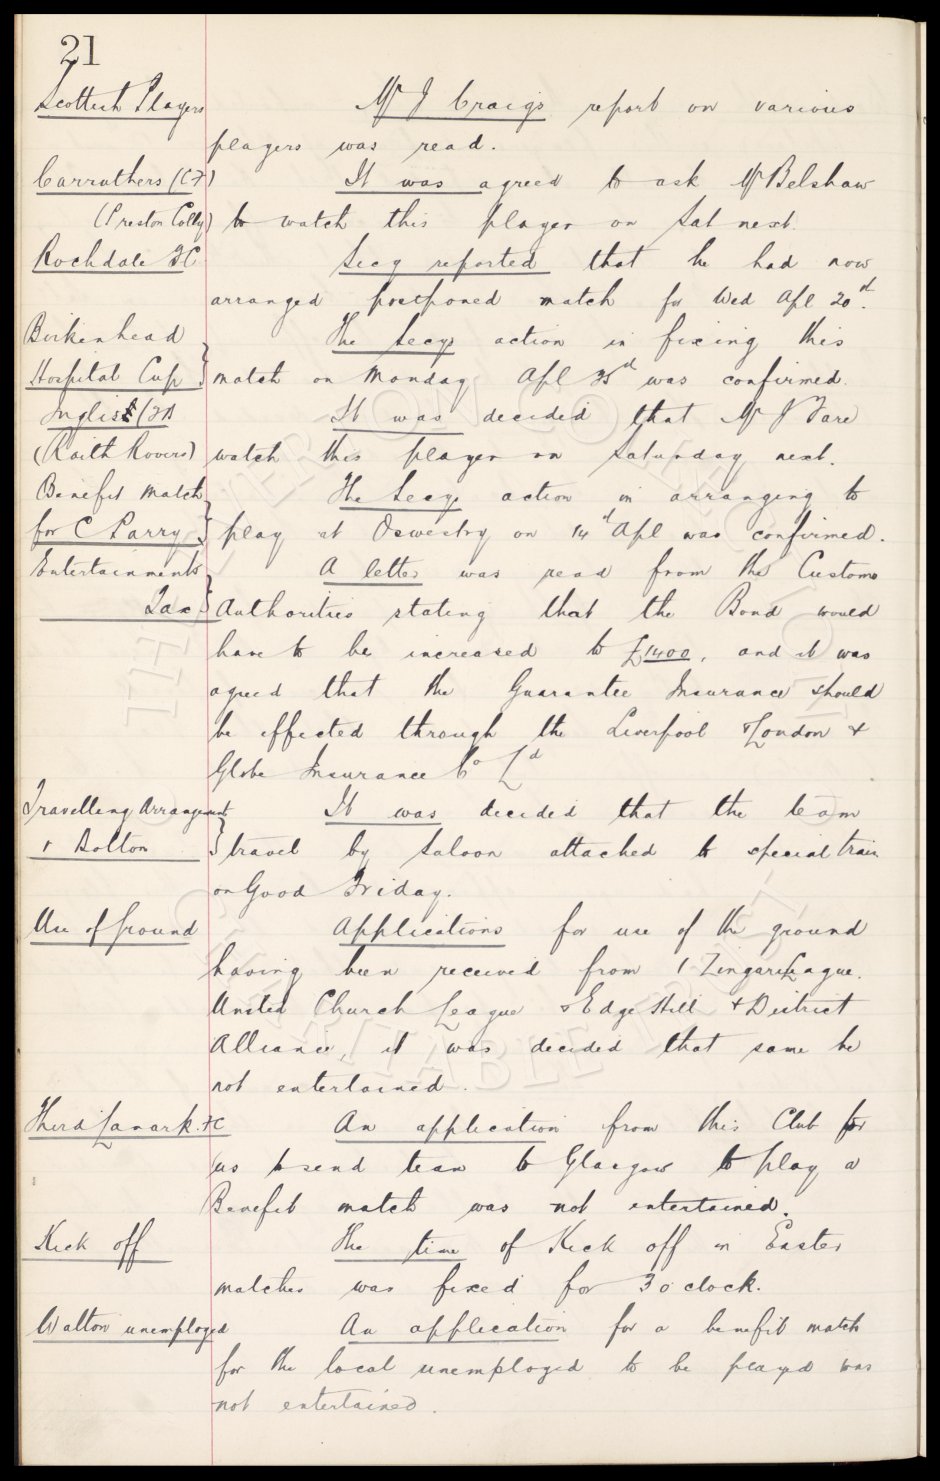 21
Scottish Players Mr J Craig's report on various
players was read.
Carruthers (CF) It was agreed to ask Mr Belshaw
(Preston Colly) to watch this player on Sat next.
Rochdale FC Secy reported that he had now
arranged postponed match for Wed Apl 20th.
Birkenhead The Secys action in fixing this
Hospital Cup } match on Monday Apl 25th was confirmed.
Inglis It was decided that Mr J Fare
(Raith Rovers) watch this player on Saturday next.
Benefit Match The Secys action in arranging to
for C Parry } play at Oswestry on 14th Apl was confirmed.
Entertainments A letter was read from the Customs
Tax } Authorities stating that the Bond would
have to be increased to £1400, and it was
agreed that the Guarantee Insurance should
be effected through the Liverpool & London &
Globe Insurance Co Ld
Travelling Arrangement It was decided that the team
v Bolton } travel by saloon attached to special train
on Good Friday.
Use of Ground Applications for use of the ground
having been received from I Zingari League.
United Church League & Edge Hill & District
Alliance, it was decided that same be
not entertained.
Third Lanark. FC An application from this Club for
us to send team to Glasgow to play a
Benefit match was not entertained.
Kick off The time of Kick off in Easter
matches was fixed for 3 o clock.
Walton unemployed An application for a benefit match
for the local unemployed to be played was
not entertained.